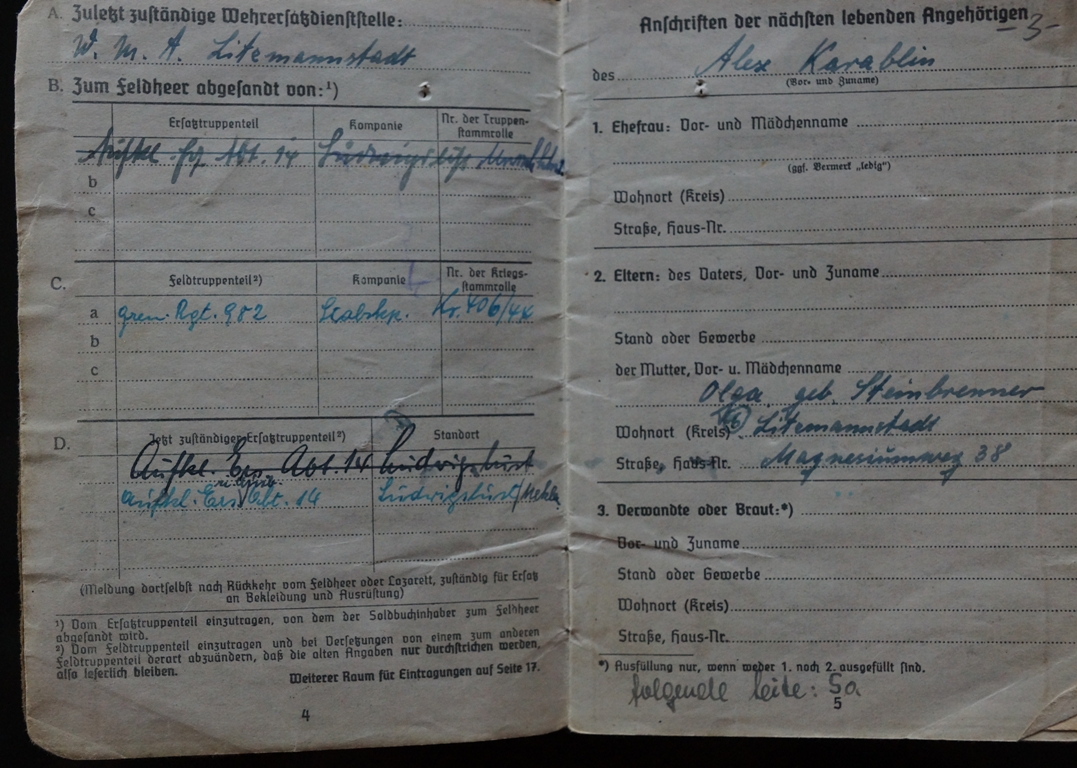 A. Zuletzt zuständige Wehrersatzdienststelle:
W. M. A. Litzmannstadt
B. Zum Feldheer abgesandt von:¹)
Ersatztruppenteil Kompanie Nr. der Truppenstammrolle
Abt. 14
b
c
C. Feldtruppenteil²) Kompanie Nr. der Kriegsstammrolle
a Gren. Rgt. 982 Stabskp. Nr. 406/44
b
c
D. Jetzt zuständiger Ersatztruppenteil²) Standort
Aufkl. Ers. Abt. 14 Ludwigslust
Aufkl. Ers. Abt. 14 Ludwigslust/Meckl.
(Meldung dortselbst nach Rückkehr vom Feldheer oder Lazarett, zuständig für Ersatz
an Bekleidung und Ausrüstung)
¹) Vom Ersatztruppenteil einzutragen, von dem der Soldbuchinhaber zum Feldheer
abgesandt wird.
²) Vom Feldtruppenteil einzutragen und bei Versetzungen von einem zum anderen
Feldtruppenteil derart abzuändern, daß die alten Angaben nur durchstrichen werden,
also leserlich bleiben.
Weiterer Raum für Eintragungen auf Seite 17.
4
Anschriften der nächsten lebenden Angehörigen
-3-
des Alex Karablin
(Vor- und Zuname)
1. Ehefrau: Vor- und Mädchenname
(ggf. Vermerk „ledig")
Wohnort (Kreis)
Straße, Haus-Nr.
2. Eltern: des Vaters, Vor- und Zuname
Stand oder Gewerbe
der Mutter, Vor- u. Mädchenname
Olga geb. Steinbrenner
Wohnort (Kreis) Litzmannstadt
Straße, Haus-Nr. Magnesiumweg 38
3. Verwandte oder Braut:*)
Vor- und Zuname
Stand oder Gewerbe
Wohnort (Kreis)
Straße, Haus-Nr.
*) Ausfüllung nur, wenn weder 1. noch 2. ausgefüllt sind.
folgende Seite: 5a
5